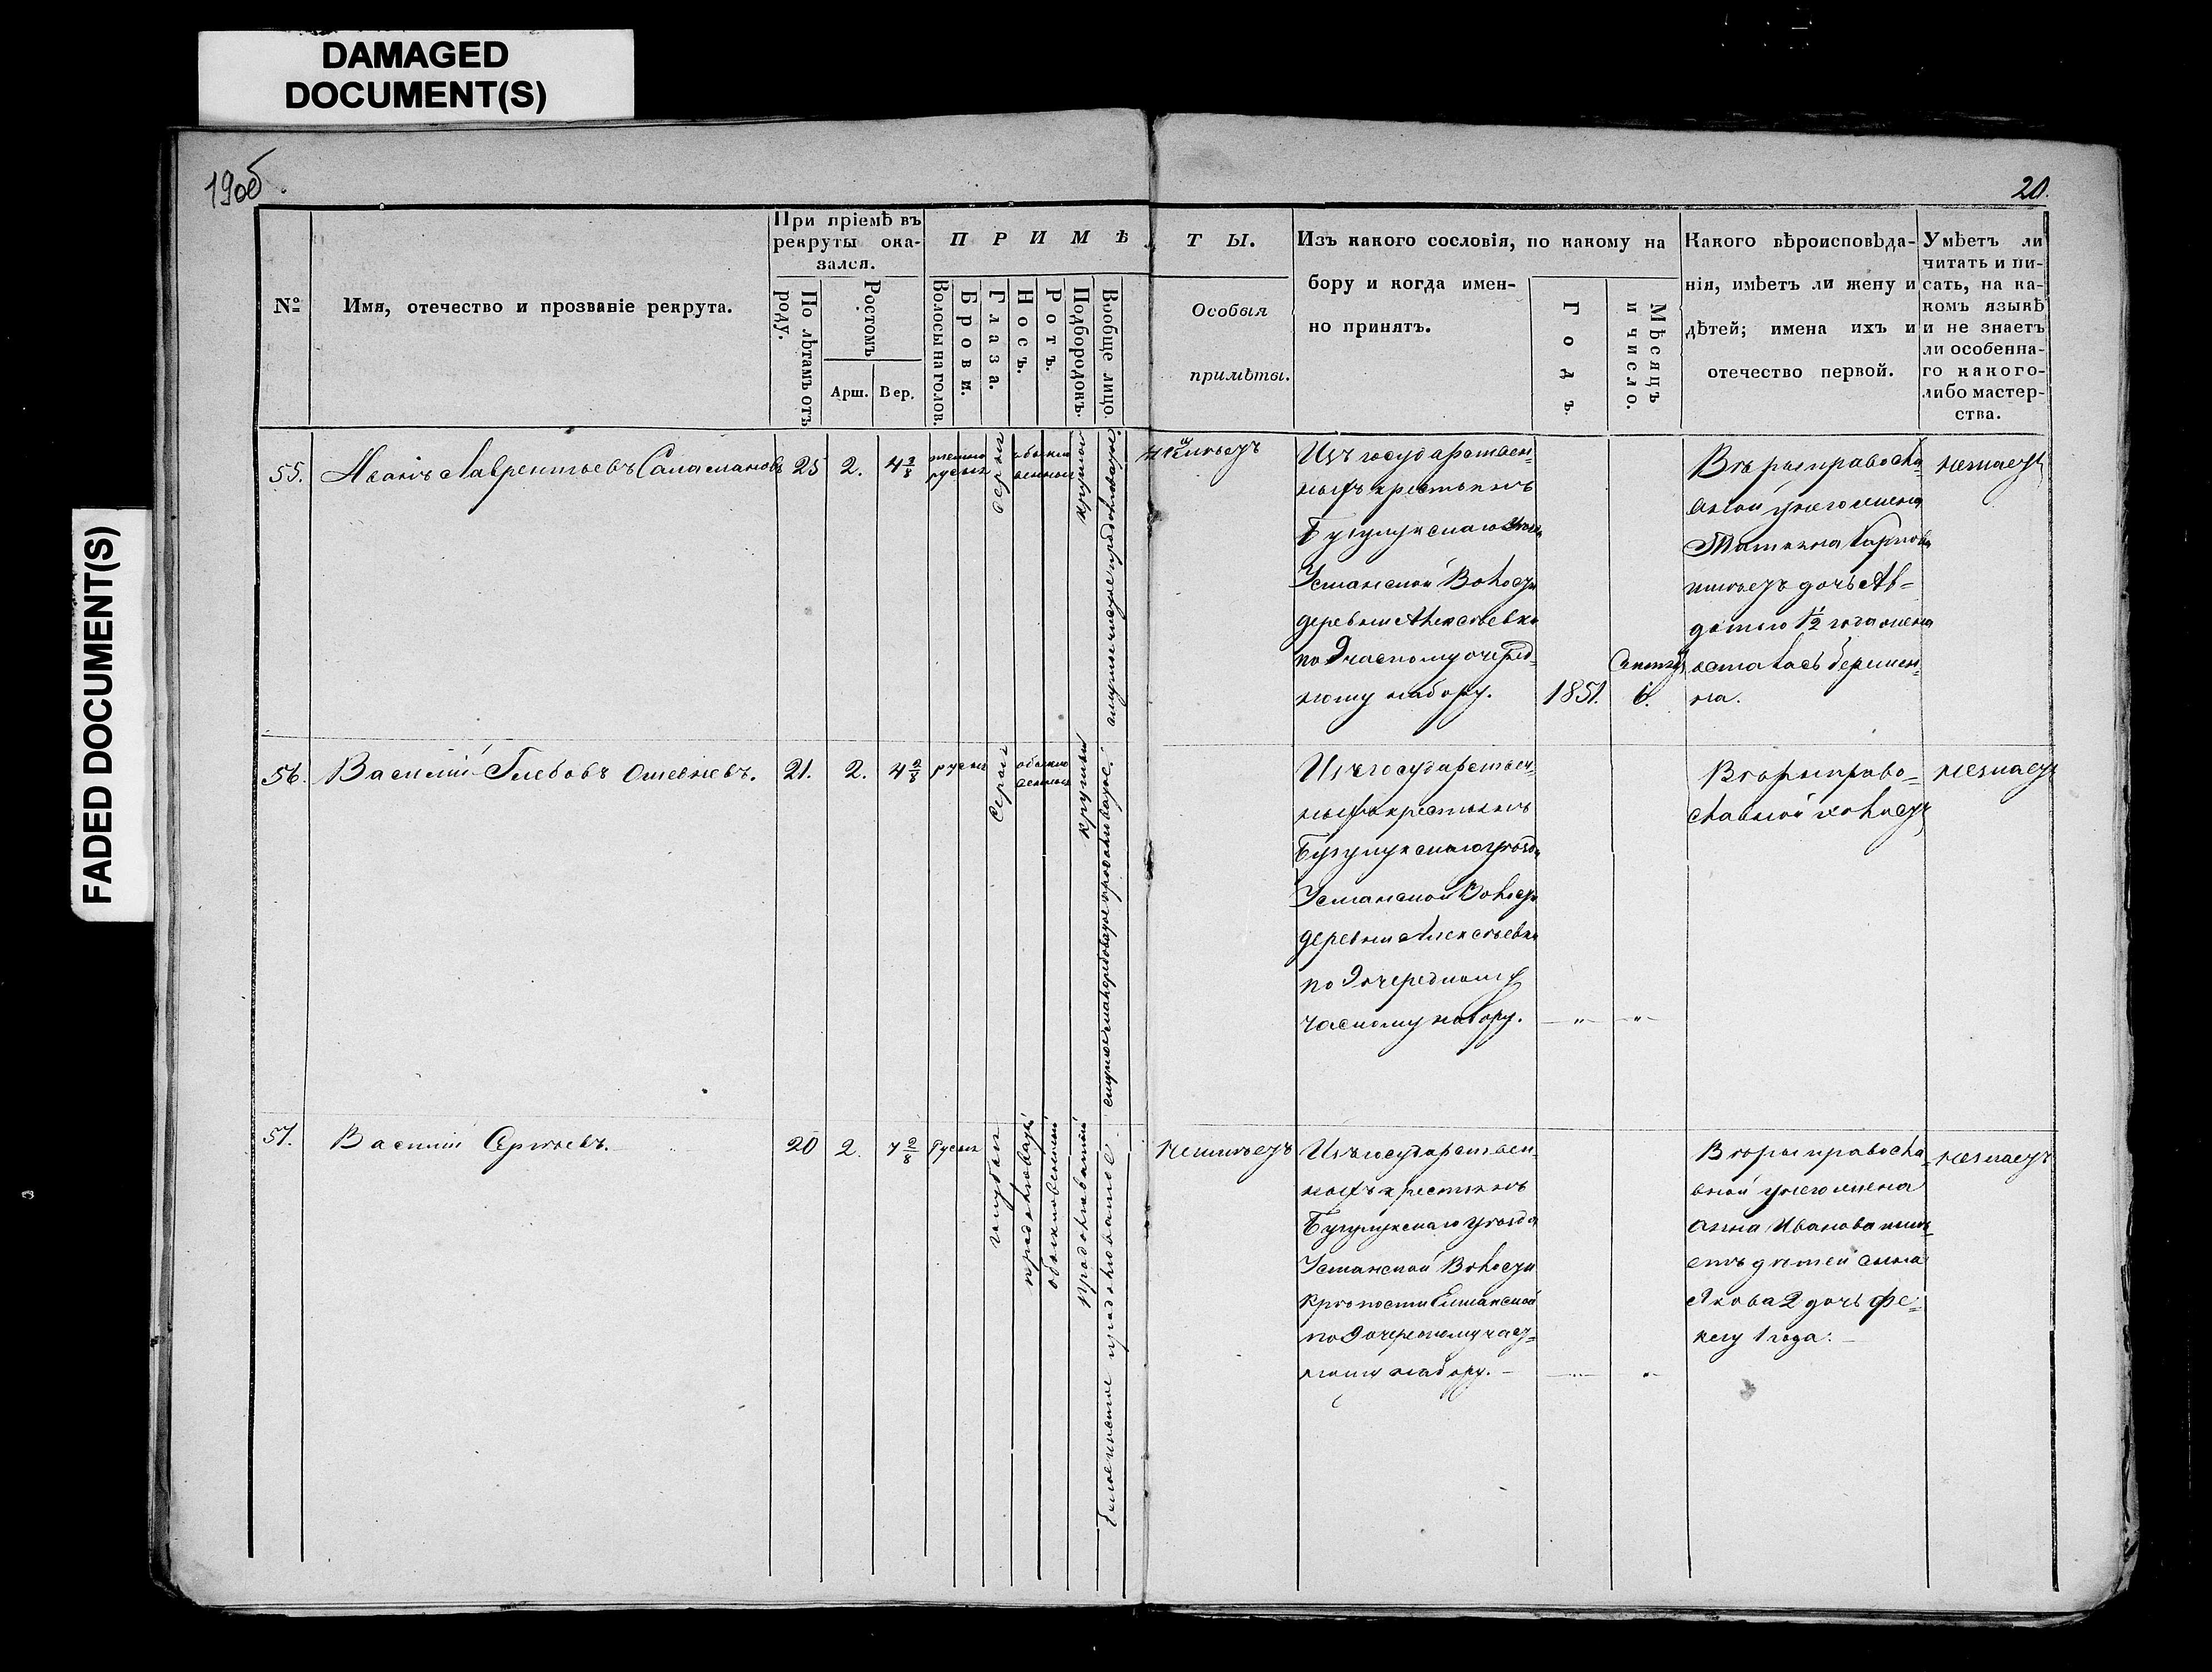 DAMAGED
DOCUMENT(S)
FADED DOCUMENT(S)
19об.
20.
№
Имя, отечество и прозваніе рекрута.
При пріемѣ въ
рекруты ока-
зался.
По лѣтамъ отъ
роду.
Ростомъ
Арш.
Вер.
ПРИМѢ
ТЫ.
Волосы на голов.
Брови.
Глаза.
Носъ.
Ротъ.
Подбородокъ.
Вообще лицо.
Особыя
примѣты.
Изъ какого сословія, по какому на
бору и когда имен-
но принятъ.
Годъ.
Мѣсяцъ
и число.
Какого вѣроисповѣда-
нія, имѣетъ ли жену и
дѣтей; имена ихъ и
отечество первой.
Умѣетъ ли
читать и пи-
сать, на ка-
комъ языкѣ
и не знаетъ
ли особенна-
го какого-
либо мастер-
ства.
55.
Иванъ Лаврентьевъ
25
2.
4 2/8
темно
русыя
серыя
обыкно
венныя
круглой
неимѣетъ
Изъ государствен-
ныхъ крестьянъ
Бугулукскаго
Усманской Волости
деревни Алексѣевки
по 9 часному очеред-
ному набору.
1851.
6.
Вѣры правосла-
вной у него жена
Татьяна Карпова
имѣетъ дочь Ав-
дотью 1 1/2 года жена
осталась беремен-
на.
незнаетъ
56.
Василій Глебовъ
21.
2.
4 2/8
русыя
Серыя
обыкно
венныя
круглый
Изъ государствен-
ныхъ крестьянъ
Бугулукскаго уѣзда
Усманской Волости
деревни Алексѣевки
по 9 очередному
часному набору.
— „ —
„ —
Вѣры право-
славной холостъ
незнаетъ
57.
Василій Сергѣевъ.
20
2.
4 2/8
Русыя
голубыя
продолговатый
обыкновенный
продолговатый
неимѣетъ
Изъ государствен-
ныхъ крестьянъ
Бугулукскаго уѣзда
Усманской Волости
Крѣпости Елшанской
по 9 очередному част-
ному набору. —
— „ —
„ —
Вѣры правосла-
вной у него жена
Анна Иванова имѣ-
етъ дѣтей сына
Якова 2 дочь Фе-
клу 1 года. —
незнаетъ